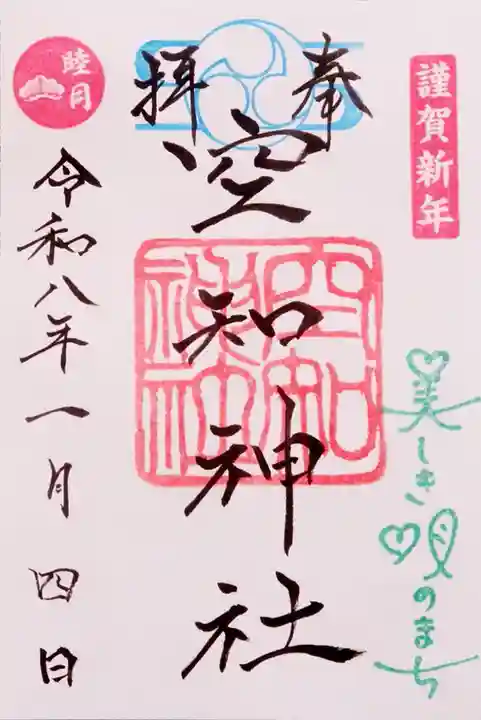 謹賀新年
美しき唄のまち
奉拝
空知神社
空知神社
令和八年一月四日
睦月